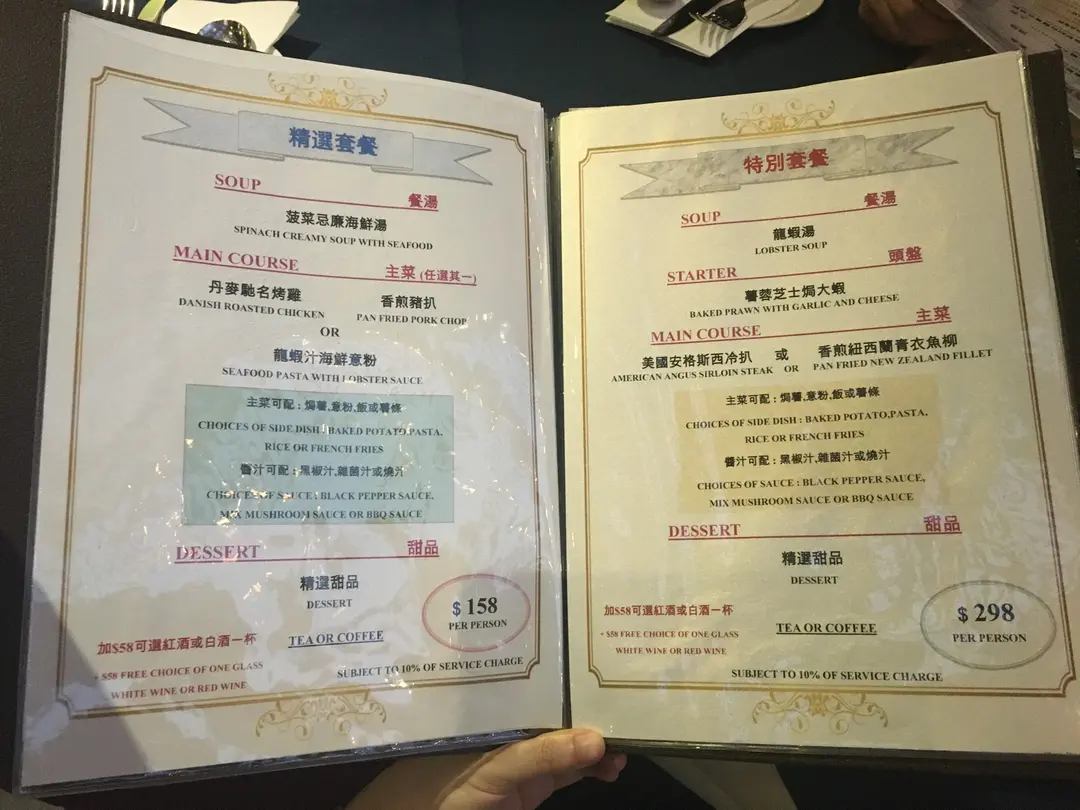 精選套餐
SOUP 餐湯
菠菜忌廉海鮮湯
SPINACH CREAMY SOUP WITH SEAFOOD
MAIN COURSE 主菜 (任選其一)
丹麥馳名烤雞 香煎豬扒
DANISH ROASTED CHICKEN PAN FRIED PORK CHOP
OR
龍蝦汁海鮮意粉
SEAFOOD PASTA WITH LOBSTER SAUCE
主菜可配 : 焗薯,意粉,飯或薯條
CHOICES OF SIDE DISH : BAKED POTATO,PASTA,
RICE OR FRENCH FRIES
醬汁可配 : 黑椒汁,雜菌汁或燒汁
CHOICES OF SAUCE : BLACK PEPPER SAUCE,
MIX MUSHROOM SAUCE OR BBQ SAUCE
DESSERT 甜品
精選甜品
DESSERT
$ 158
PER PERSON
加$58可選紅酒或白酒一杯
TEA OR COFFEE
+ $58 FREE CHOICE OF ONE GLASS
WHITE WINE OR RED WINE
SUBJECT TO 10% OF SERVICE CHARGE
特別套餐
SOUP 餐湯
龍蝦湯
LOBSTER SOUP
STARTER 頭盤
薯蓉芝士焗大蝦
BAKED PRAWN WITH GARLIC AND CHEESE
MAIN COURSE 主菜
美國安格斯西冷扒 或 香煎紐西蘭青衣魚柳
AMERICAN ANGUS SIRLOIN STEAK OR PAN FRIED NEW ZEALAND FILLET
主菜可配 : 焗薯,意粉,飯或薯條
CHOICES OF SIDE DISH : BAKED POTATO,PASTA,
RICE OR FRENCH FRIES
醬汁可配 : 黑椒汁,雜菌汁或燒汁
CHOICES OF SAUCE : BLACK PEPPER SAUCE,
MIX MUSHROOM SAUCE OR BBQ SAUCE
DESSERT 甜品
精選甜品
DESSERT
$ 298
PER PERSON
加$58可選紅酒或白酒一杯
TEA OR COFFEE
+ $58 FREE CHOICE OF ONE GLASS
WHITE WINE OR RED WINE
SUBJECT TO 10% OF SERVICE CHARGE